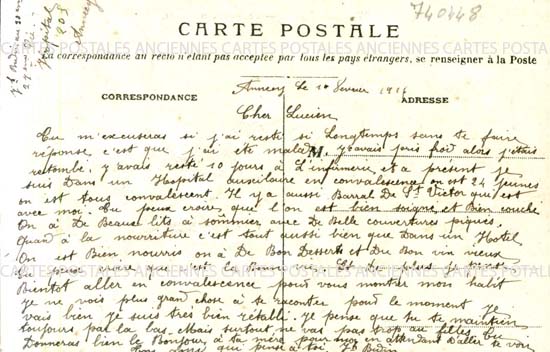 740448
Hôpital
203
Annecy
CARTE POSTALE
La correspondance au recto n'étant pas acceptée par tous les pays étrangers, se renseigner à la Poste
CARTES POSTALES ANCIENNES CARTES POSTALES ANCIENNES
CORRESPONDANCE
ADRESSE
Annecy le 10 Février 191
Cher Lucien
Tu m'excuseras si j'ai resté si longtemps sans te faire
réponse c'est que j'ai été malade y avais pris froid alors j'étais
M
retombé, y avais resté 10 jours à l'infirmerie et a présent je
suis Dans un Hopital auxiliaire en convalescence on est 24 jeunes
on est tous convalescent. Il y a aussi Barral De St Victor qui est
avec moi. Tu peuse croire que l'on est bien soigné et Bien couché
On a De Beaux lits à sommier avec De Belle couvertures piqués,
Quand à la nourriture c'est tout aussi bien que Dans un Hotel
On est Bien nourris on a De Bon Dessert et Du Bon vin vieux
Bientôt aller en convalescence pour vous montrer mon habit
je ne vois plus grand chose à te raconter pour le moment je
vais bien je suis très bien rétabli. je pense que tu te maintien
toujours par la bas. Mais surtout ne vas pas trop au filles, tu
Donneras bien le Bonjour à ta mère pour moi en attendant D'aller te voir
pense à toi